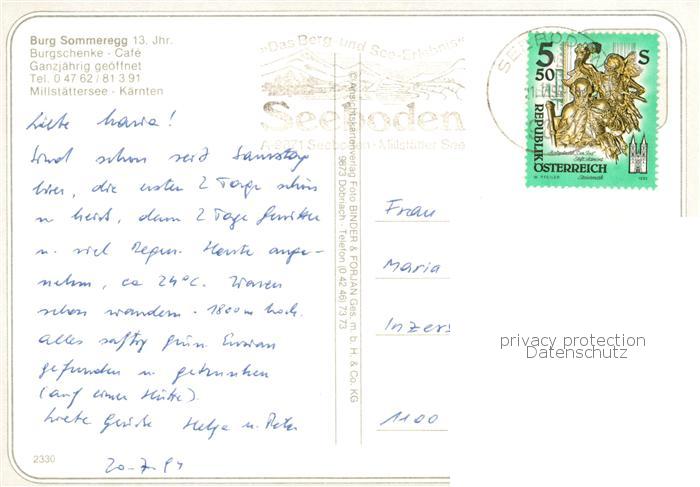 Burg Sommeregg 13. Jhr.
Burgschenke - Café
Ganzjährig geöffnet
Tel. 0 47 62 / 81 3 91
Millstättersee - Kärnten
Liebe Maria!
Sind schon seit Samstag
hier, die ersten 2 Tage schön
u heiß, dann 2 Tage Gewitter
u. viel Regen. Heute ange-
nehm, ca 24°C. Waren
schon wandern - 1800 m hoch.
alles saftig grün. Enzian
gefunden u getrunken
(auf einer Hütte).
Liebe Grüße Helga u. Peter
20-7-94
2330
„Das Berg- und See-Erlebnis"
Seeboden
A-9871 Seeboden - Millstätter See
© Ansichtskartenverlag Foto BINDER & FORJAN Ges. m. b. H. & Co. KG
9873 Döbriach - Telefon (0 42 46) 73 73
SEEBODEN
5 50 S
REPUBLIK
ÖSTERREICH
Frau
Maria
Inzers
1100
privacy protection
Datenschutz